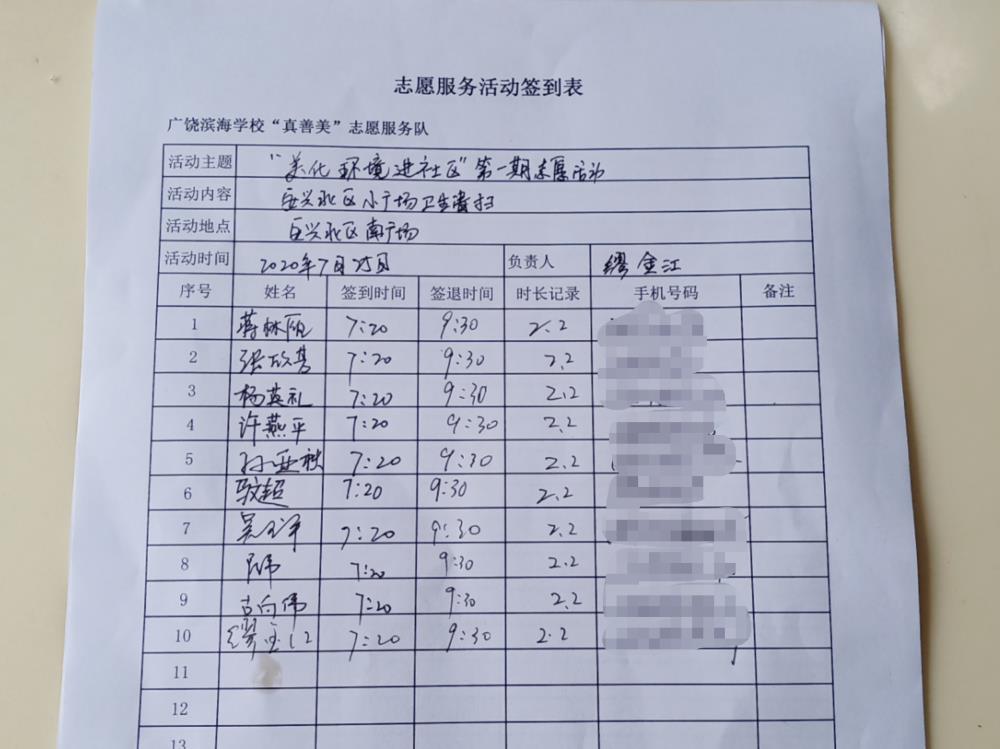 志愿服务活动签到表
广饶滨海学校“真善美”志愿服务队
活动主题 “美化环境进社区”第一期志愿活动
活动内容 巨兴北区小广场卫生清扫
活动地点 巨兴北区南广场
活动时间 2020年7月 日 负责人 缪金江
序号 姓名 签到时间 签退时间 时长记录 手机号码 备注
1 蒋林丽 7:20 9:30 2.2
2 张 7:20 9:30 2.2
3 杨英礼 7:20 9:30 2.2
4 许燕平 7:20 9:30 2.2
5 孙亚秋 7:20 9:30 2.2
6 超 7:20 9:30 2.2
7 吴 7:20 9:30 2.2
8 7:20 9:30 2.2
9 吉向伟 7:20 9:30 2.2
10 缪金江 7:20 9:30 2.2
11
12
13